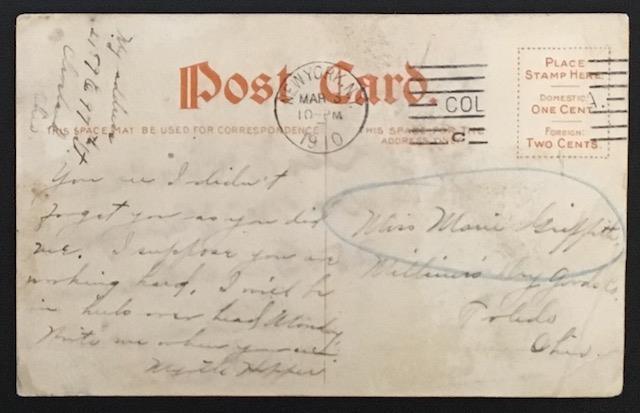 My address
4176 E 77 St
Cleveland
Ohio
Post Card.
NEW YORK, N.Y.
MAR 5
10-PM
1910
COL
C
PLACE
STAMP HERE
DOMESTIC:
ONE CENT
FOREIGN:
TWO CENTS.
THIS SPACE MAY BE USED FOR CORRESPONDENCE
THIS SPACE FOR THE
ADDRESS ON
You see I didn't
forget you as you did
me. I suppose you are
working hard. I will be
in heels over head Monday.
Write me when you
Myrtle Hopper
Miss Marie Griffith
Dry Goods Co.
Toledo
Ohio